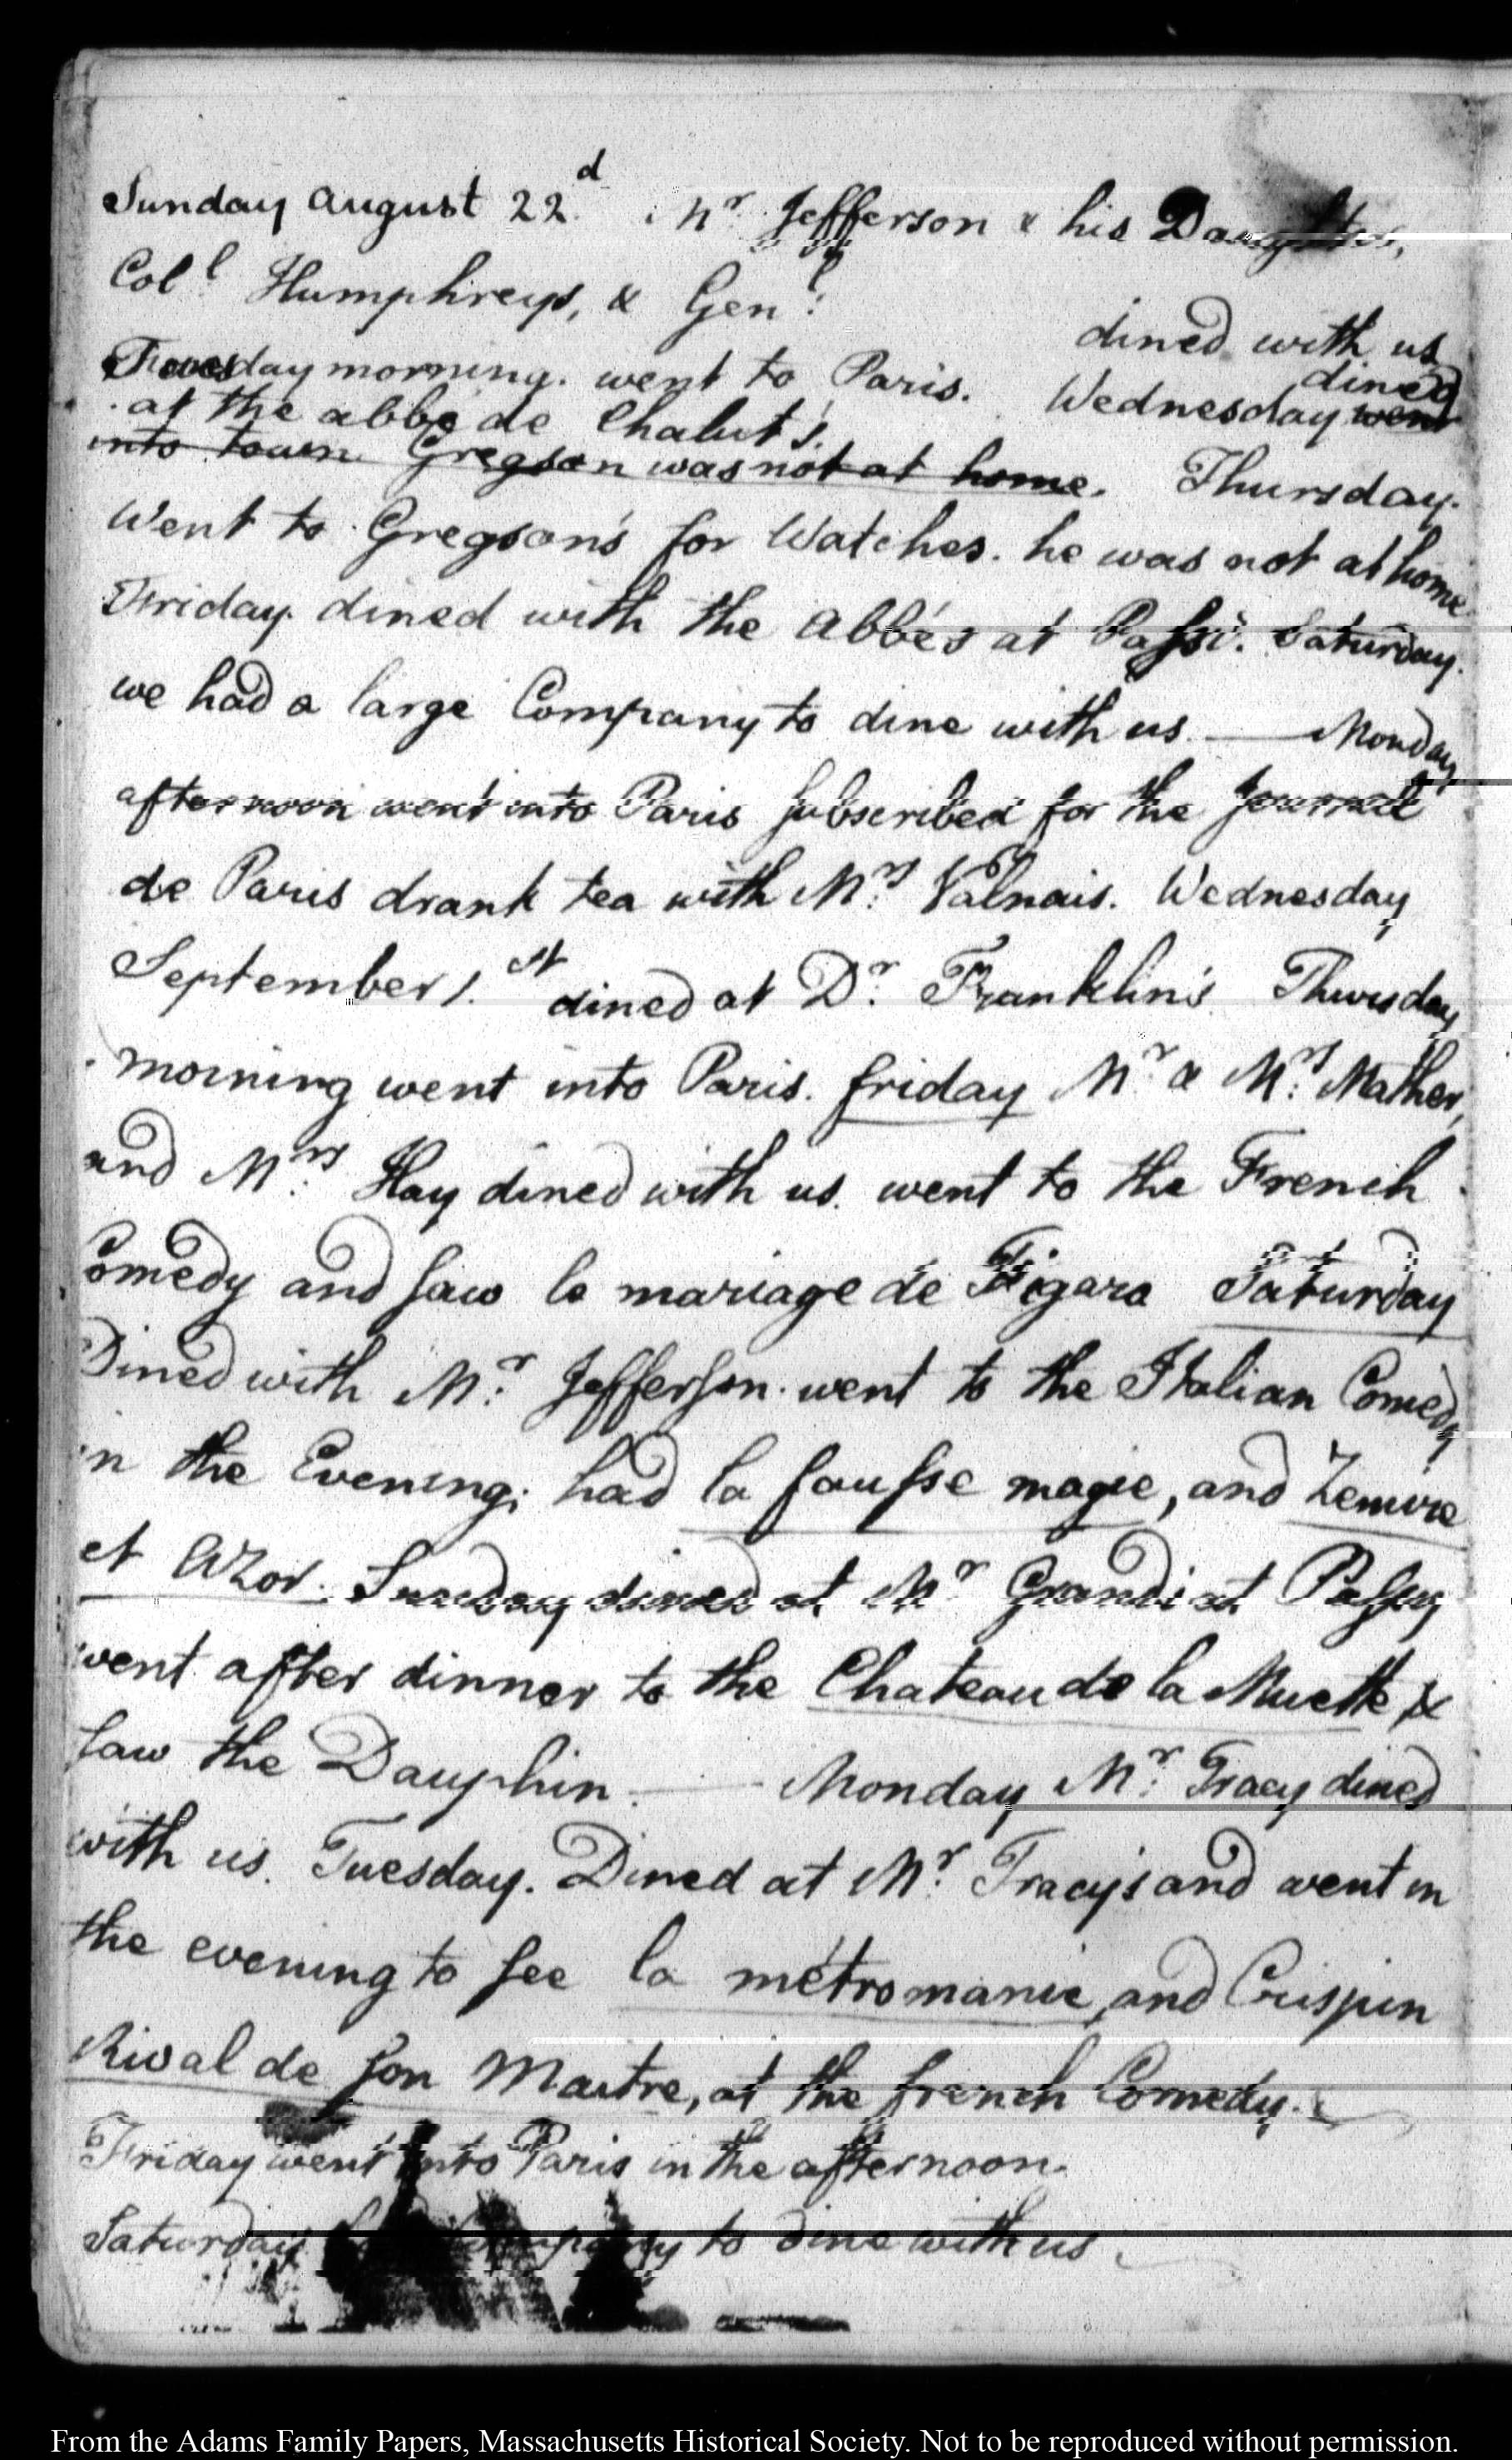 Sunday August 22.d Mr. Jefferson & his Daughter,
Coll. Humphreys, & Genl.
dined with us
Tuesday morning. went to Paris. Wednesday went dined
at the abbé de Chalut's.
into town. Gregson was not at home. Thursday.
Went to Gregson's for Watches. he was not at home
Friday. dined with the Abbés at Passi. Saturday.
we had a large Company to dine with us. — Monday
afternoon went into Paris subscribed for the Journal
de Paris drank tea with Mrs. Valnais. Wednesday
September 1.st dined at Dr. Franklin's. Thursday
morning went into Paris. friday Mr. & Mrs. Mather,
and Mrs. Hay dined with us. went to the French
Comedy and saw le mariage de Figaro Saturday
Dined with Mr. Jefferson. went to the Italian Comedy
in the Evening; had la fausse magie, and Zemire
et Azor. Sunday dined at Mr. Grand's at Passy
went after dinner to the Chateau de la Muette &
saw the Dauphin. — Monday Mr. Tracy dined
with us. Tuesday. Dined at Mr. Tracy's and went in
the evening to see la métromanie, and Crispin
Rival de son Maitre, at the french Comedy.
Friday went into Paris in the afternoon.
Saturday Company to dine with us
From the Adams Family Papers, Massachusetts Historical Society. Not to be reproduced without permission.